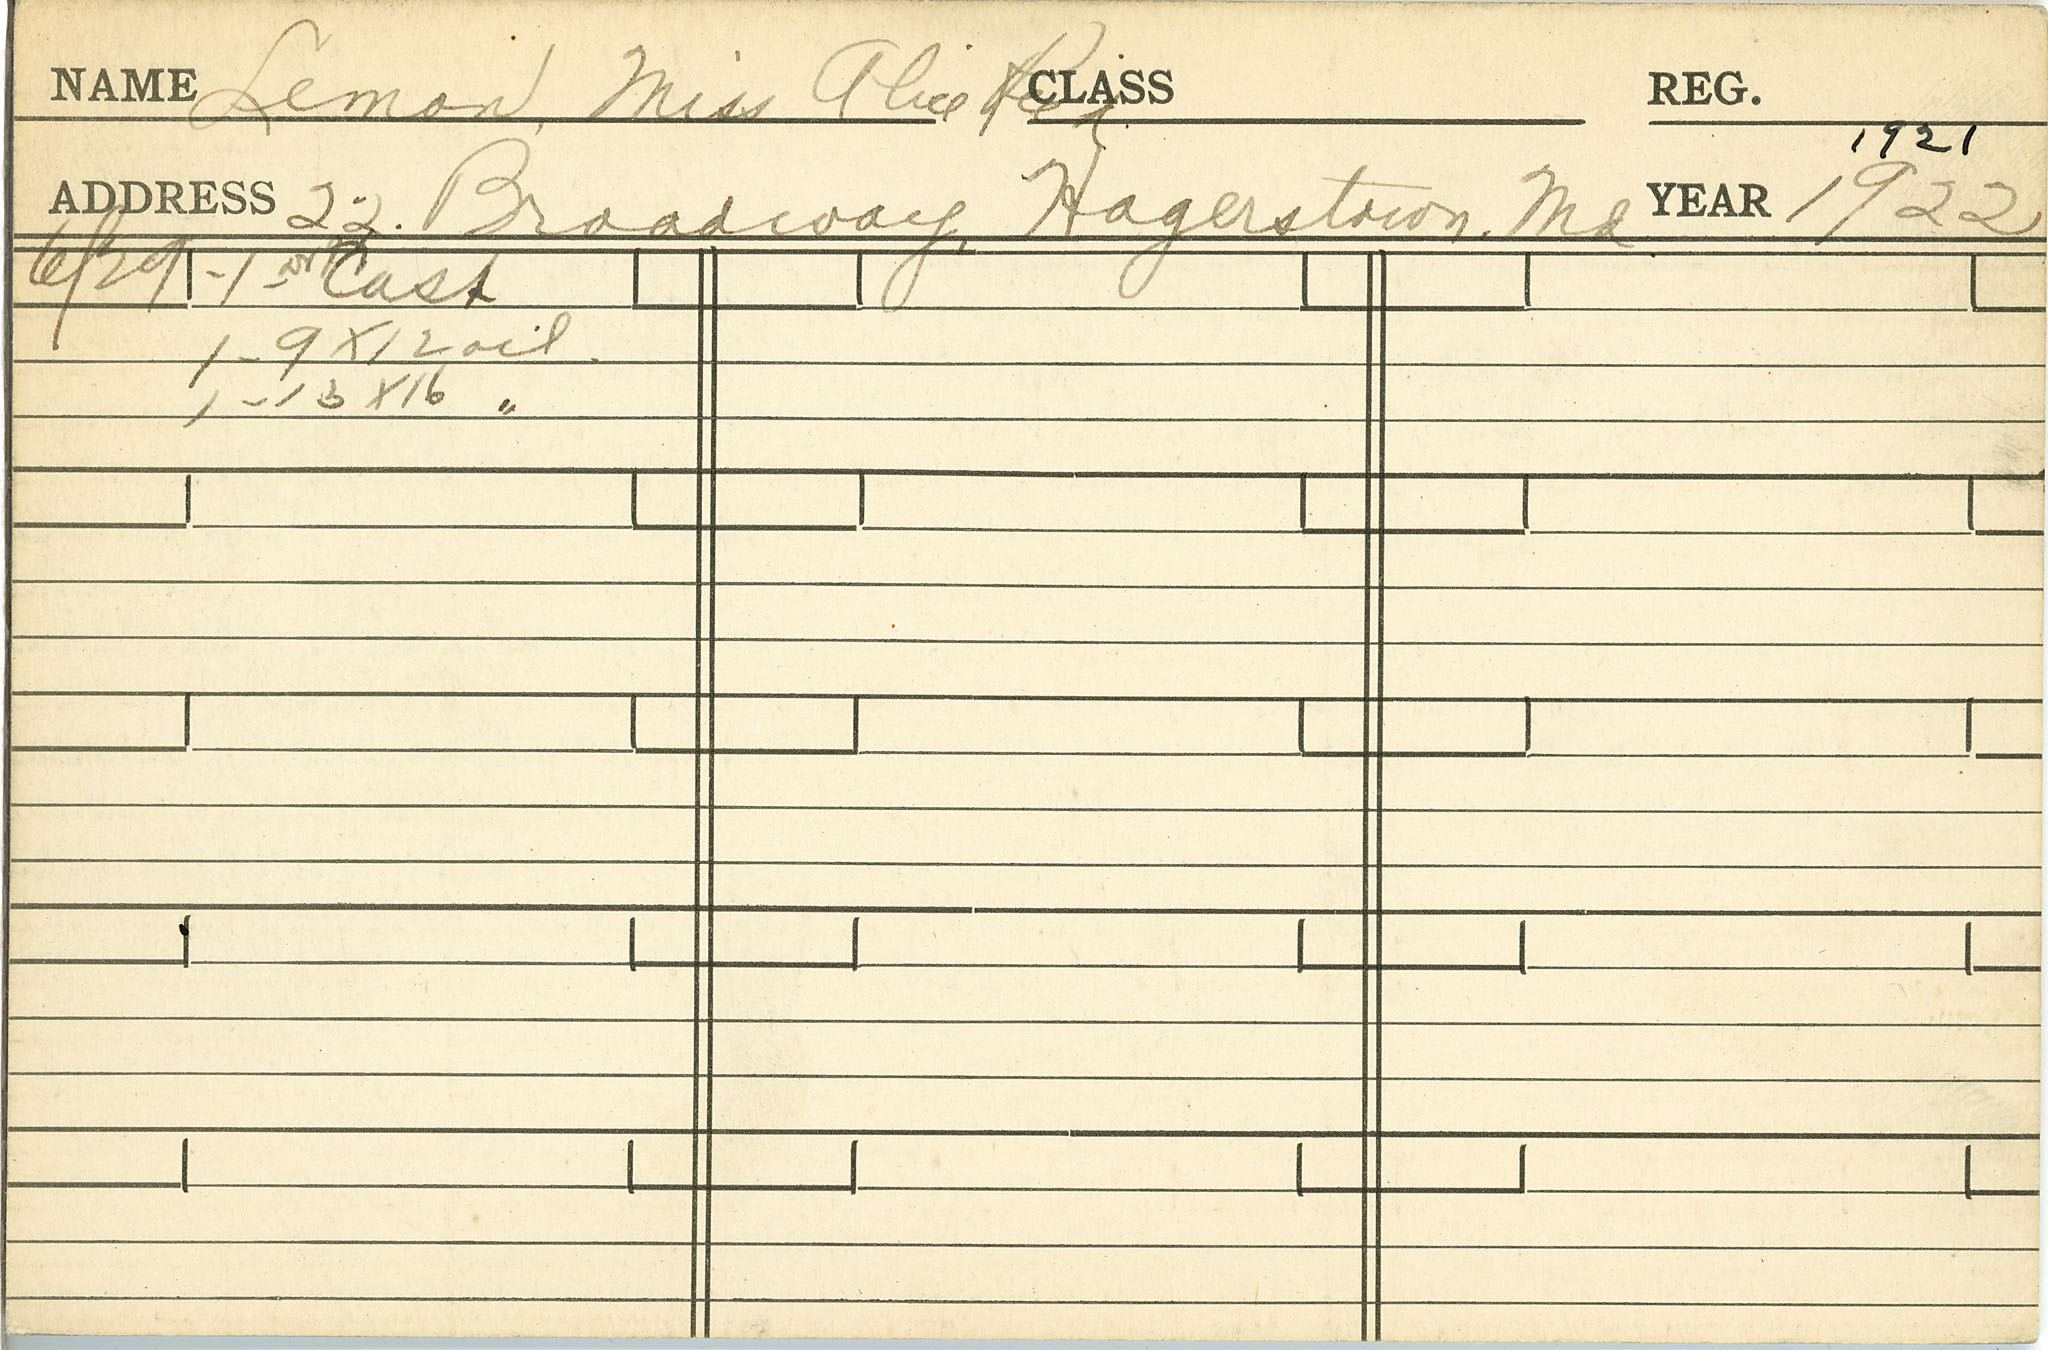 NAME Lemon, Miss Alice CLASS REG.
1921
ADDRESS 22. Broadway, Hagerstown. Md YEAR 1922
6/29 - 1 - Cast
1 - 9 X 12 oil.
1 - 13 X 16 "